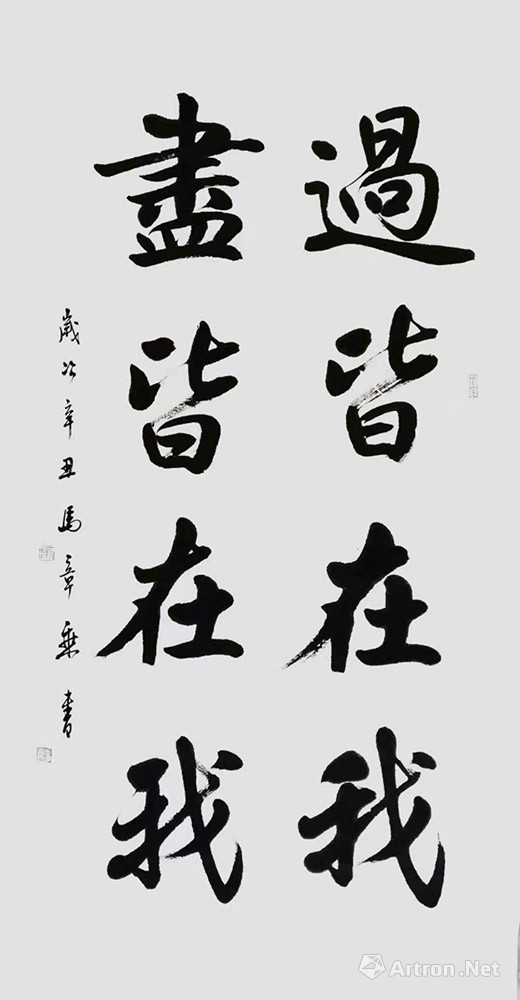 過皆在我
盡皆在我
歲次辛丑馬章乘書
Artron.Net